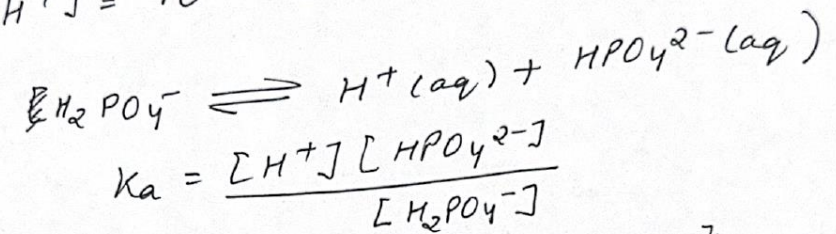 H₂PO₄⁻ ⇌ H⁺ (aq) + HPO₄²⁻ (aq)
Ka = [H⁺] [HPO₄²⁻] / [H₂PO₄⁻]